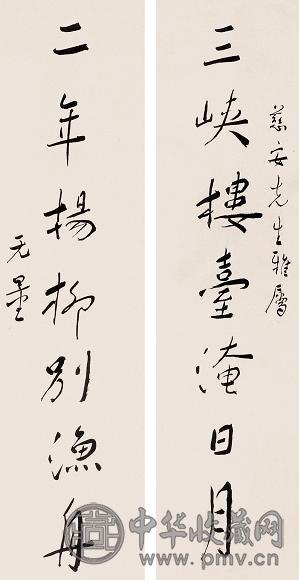 慈安先生雅屬
三峽樓臺淹日月
二年楊柳別漁舟
无量
中华收藏网
www.pmv.cn